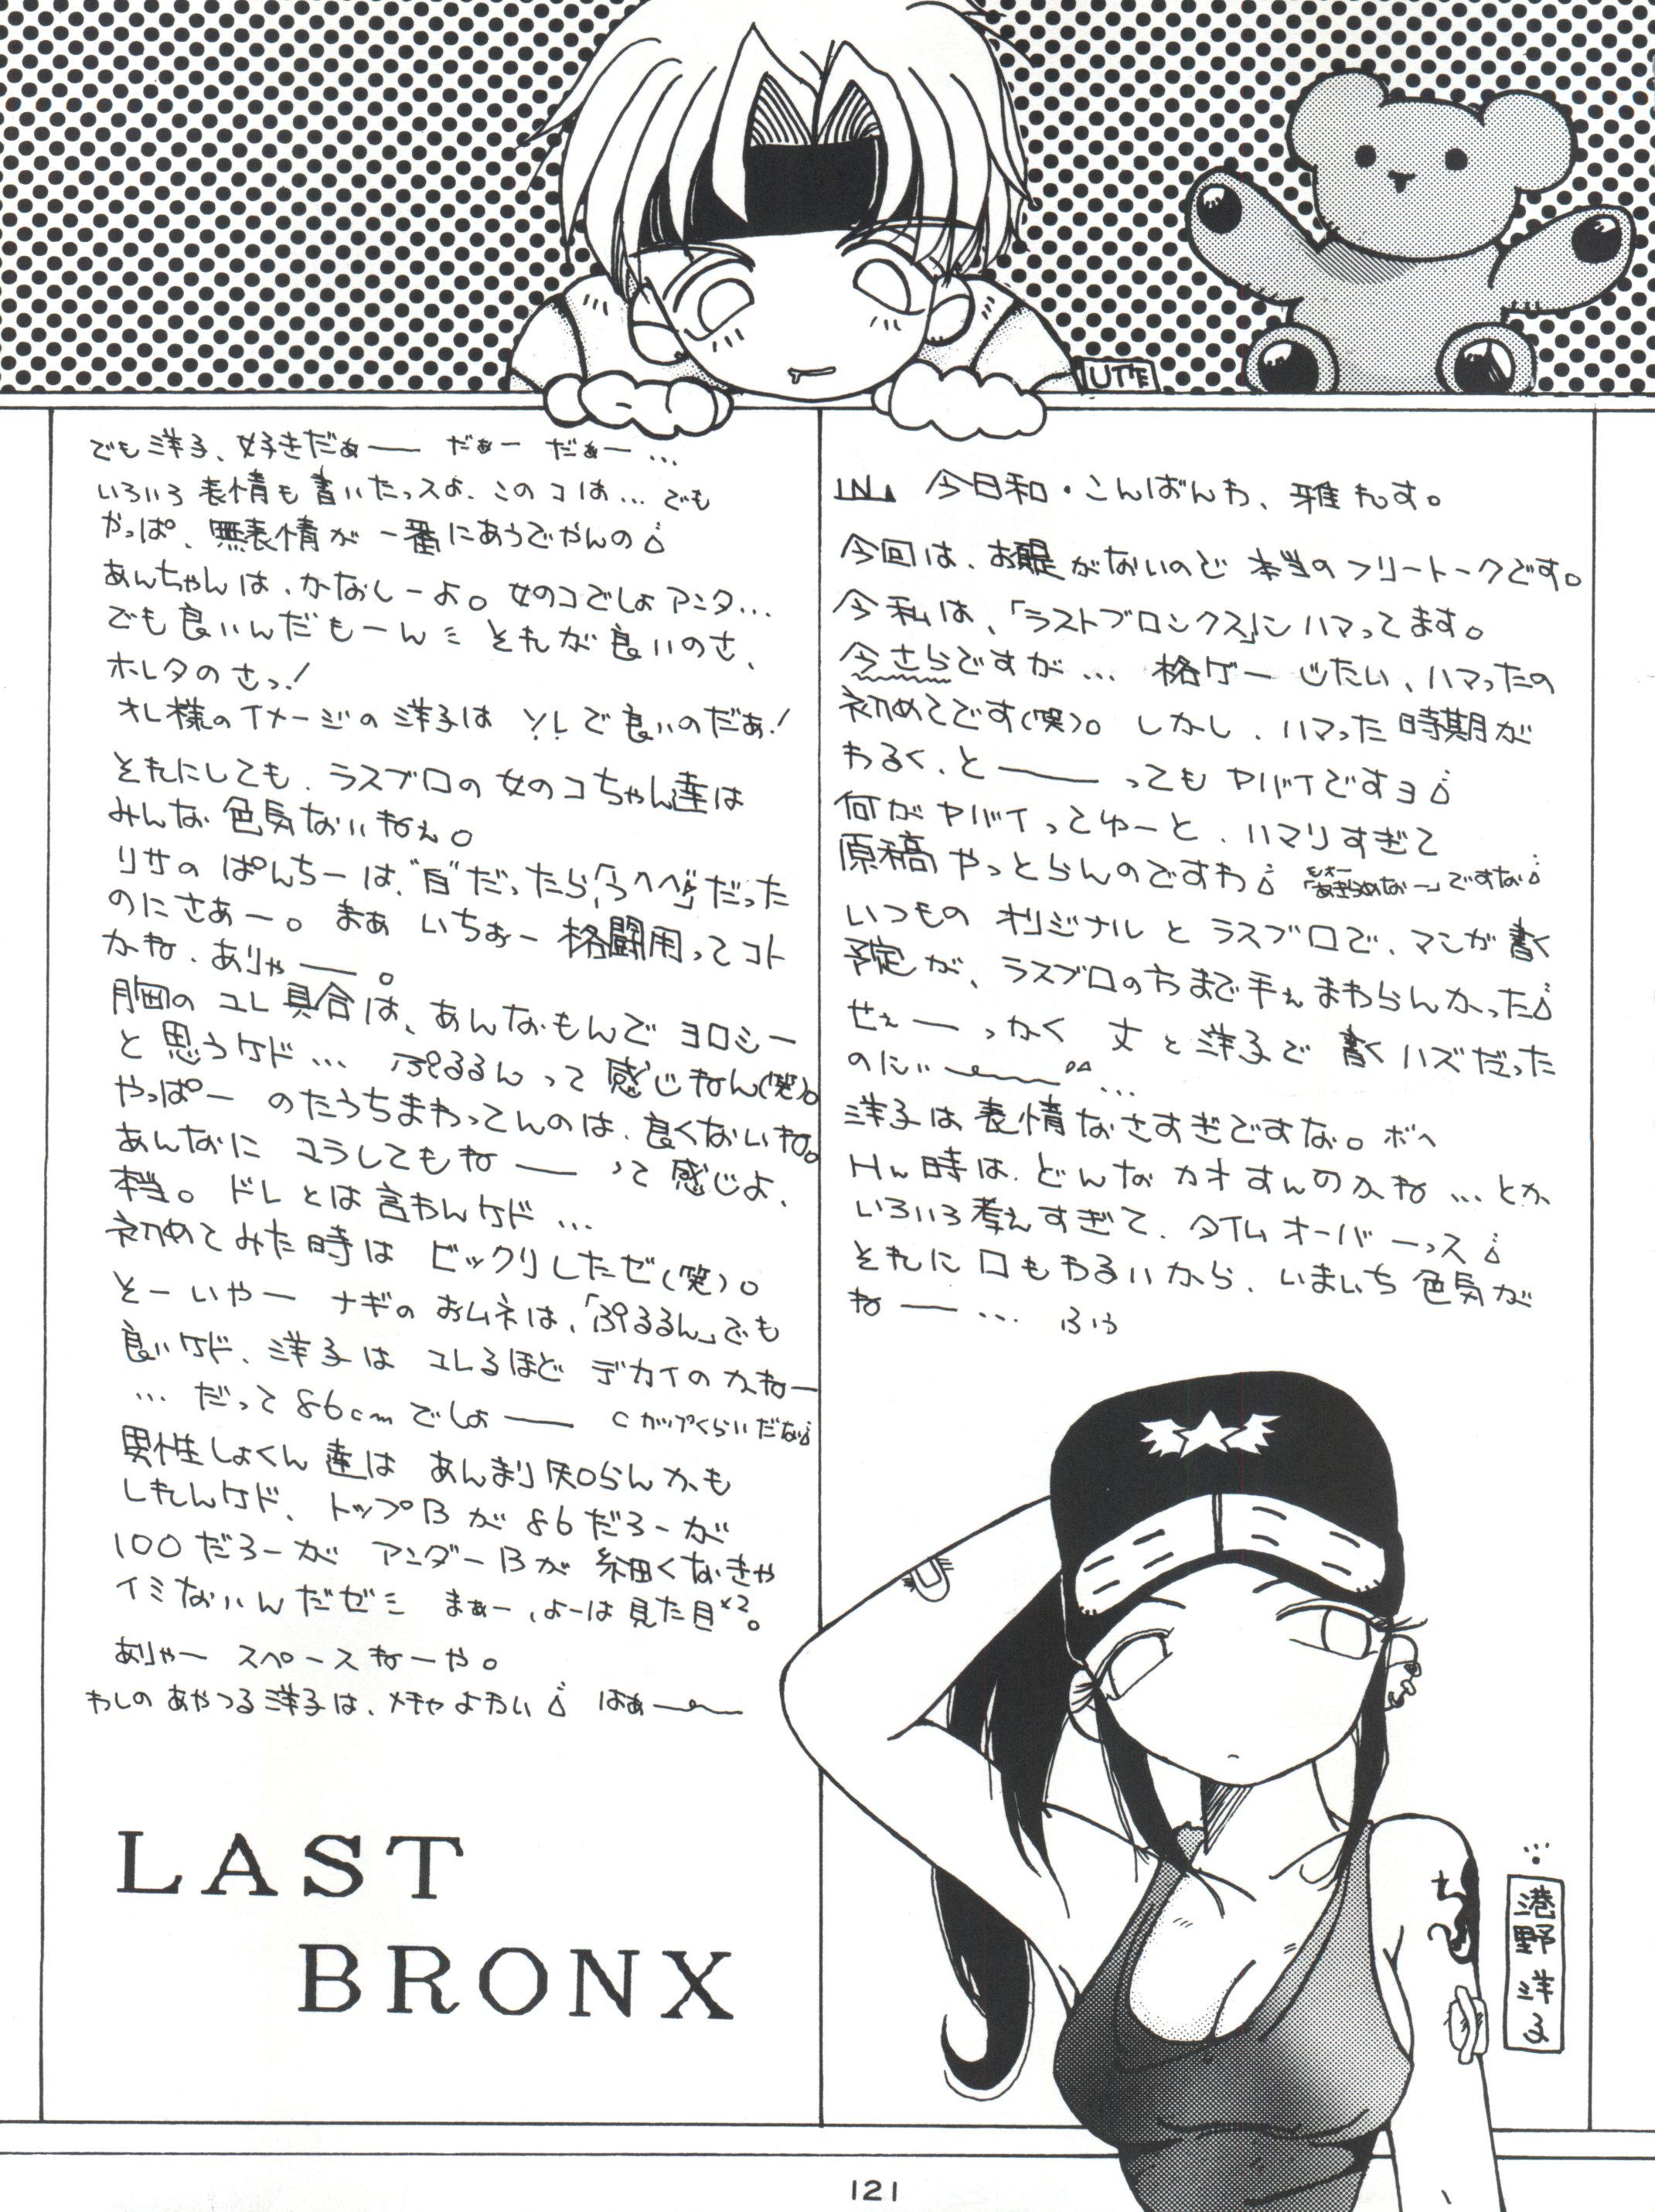 UT作
IN▲ 今日和・こんばんわ、雅れす。
今回は、お題がないので 本当のフリートークです。
今私は、「ラストブロンクス」にハマってます。
今さらですが… 格ゲーじたい、ハマったの
初めてです(笑)。しかし、ハマった時期が
わるく、と――ってもヤバイですヨ
何がヤバイってゆーと、ハマリすぎて
原稿やっとらんのですわ 「あきらめなー」ですな
いつもの オリジナル と ラスブロで、マンガ書く
予定が、ラスブロの方まで手ぇまわらんかった
せぇ――っかく 丈と洋子で書くハズだった
のにぃ…
洋子は表情なさすぎですな。ボヘ
Hん時は、どんなカオすんのかね…とか
いろいろ考えすぎて、タイムオーバーっス
それに口もわるいから、いまいち色気が
ね――… ふふ
でも洋子、好きだぁ―― だぁー だぁー…
いろいろ表情も書いたっスよ、このコは…でも
やっぱ、無表情が一番にあうでやんの
あんちゃんは、かなしーよ。女のコでしょアンタ…
でも良いんだもーん それが良いのさ、
ホレタのさっ!
オレ様のイメージの洋子は ソレで良いのだぁ!
それにしても、ラスブロの女のコちゃん達は
みんな色気ないねぇ。
リサのぱんちーは、"白"だったら「うへへ」だった
のにさぁー。まぁ いちおー格闘用ってコト
かね、ありゃ――。
胸のユレ具合は、あんなもんでヨロシー
と思うケド… ぷるるんって感じねん(笑)。
やっぱー のたうちまわってんのは、良くないね。
あんなに ユラしてもね――って感じよ、
本当。ドレとは言わんケド…
初めてみた時は ビックリしたゼ(笑)。
そーいやー ナギのおムネは、「ぷるるん」でも
良いケド、洋子は ユレるほど デカイのかねー
…だって86cmでしょ―― Cカップくらいだな
男性しょくん達は あんまり知らんかも
しれんケド、トップBが86だろーが
100だろーが アンダーBが細くなきゃ
イミないんだゼ まぁー、よーは見た目×2。
ありゃー スペースねーや。
わしのあやつる洋子は、メチャよわい はぁ――
LAST
BRONX
港野洋子
121